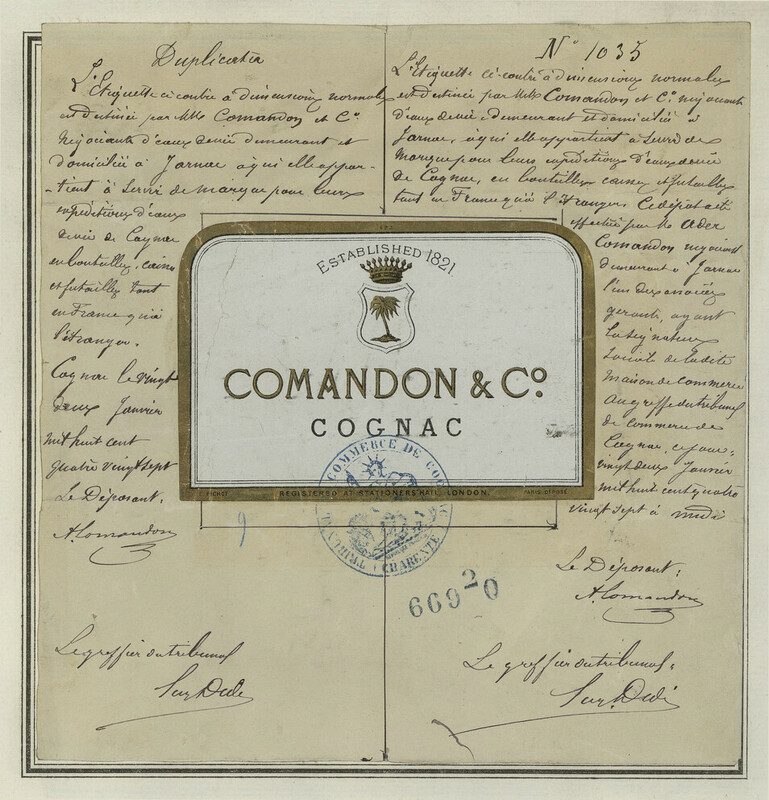 Duplicata
L'Etiquette ci-contre à dimensions normales
est destinée par MM. Comandon et Co.
négociants d'eaux de vie demeurant et
domiciliés à Jarnac à qui elle appar-
-tient à servir de marque pour leurs
expéditions d'eaux
de vie de Cognac
en bouteilles, caisses
et futailles tant
en France qu'à
l'étranger.
Cognac le vingt
deux Janvier
mil huit cent
quatre vingt sept
Le Déposant.
A. Comandon
Le greffier du tribunal
No 1035
L'Etiquette ci-contre à dimensions normales
est destinée par MM. Comandon et Co. négociants
d'eaux de vie demeurant et domiciliés à
Jarnac, à qui elle appartient à servir de
marque pour leurs expéditions d'eaux de vie
de Cognac, en bouteilles caisses et futailles
tant en France qu'à l'étranger. Ce dépôt a été
effectué par M. Ader
Comandon négociant
demeurant à Jarnac
l'un des associés
gérants, ayant
la signature
sociale de la dite
maison de commerce
au greffe du tribunal
de commerce de
Cognac, ce jour
vingt deux Janvier
mil huit cent quatre
vingt sept à midi
Le Déposant:
A. Comandon
Le greffier du tribunal:
ESTABLISHED 1821
COMANDON & Co.
COGNAC
REGISTERED AT STATIONERS HALL LONDON.
PARIS DÉPOSÉ
TRIBUNAL COMMERCE DE COGNAC
CHARENTE
9
66920